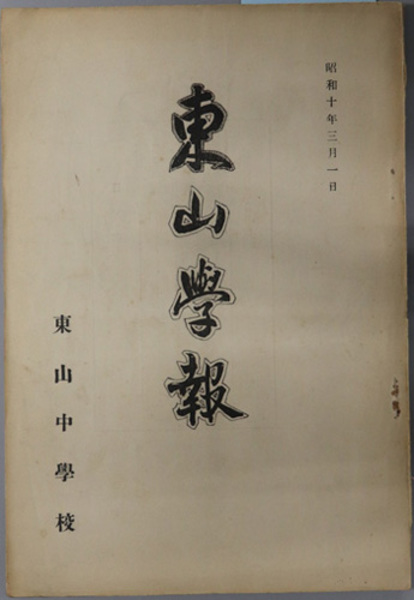 昭和十年三月一日
東山學報
東山中學校